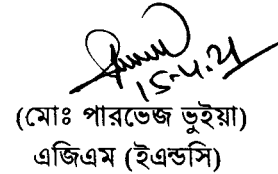 15.4.21
(মোঃ পারভেজ ভুইয়া)
এজিএম (ইএন্ডসি)